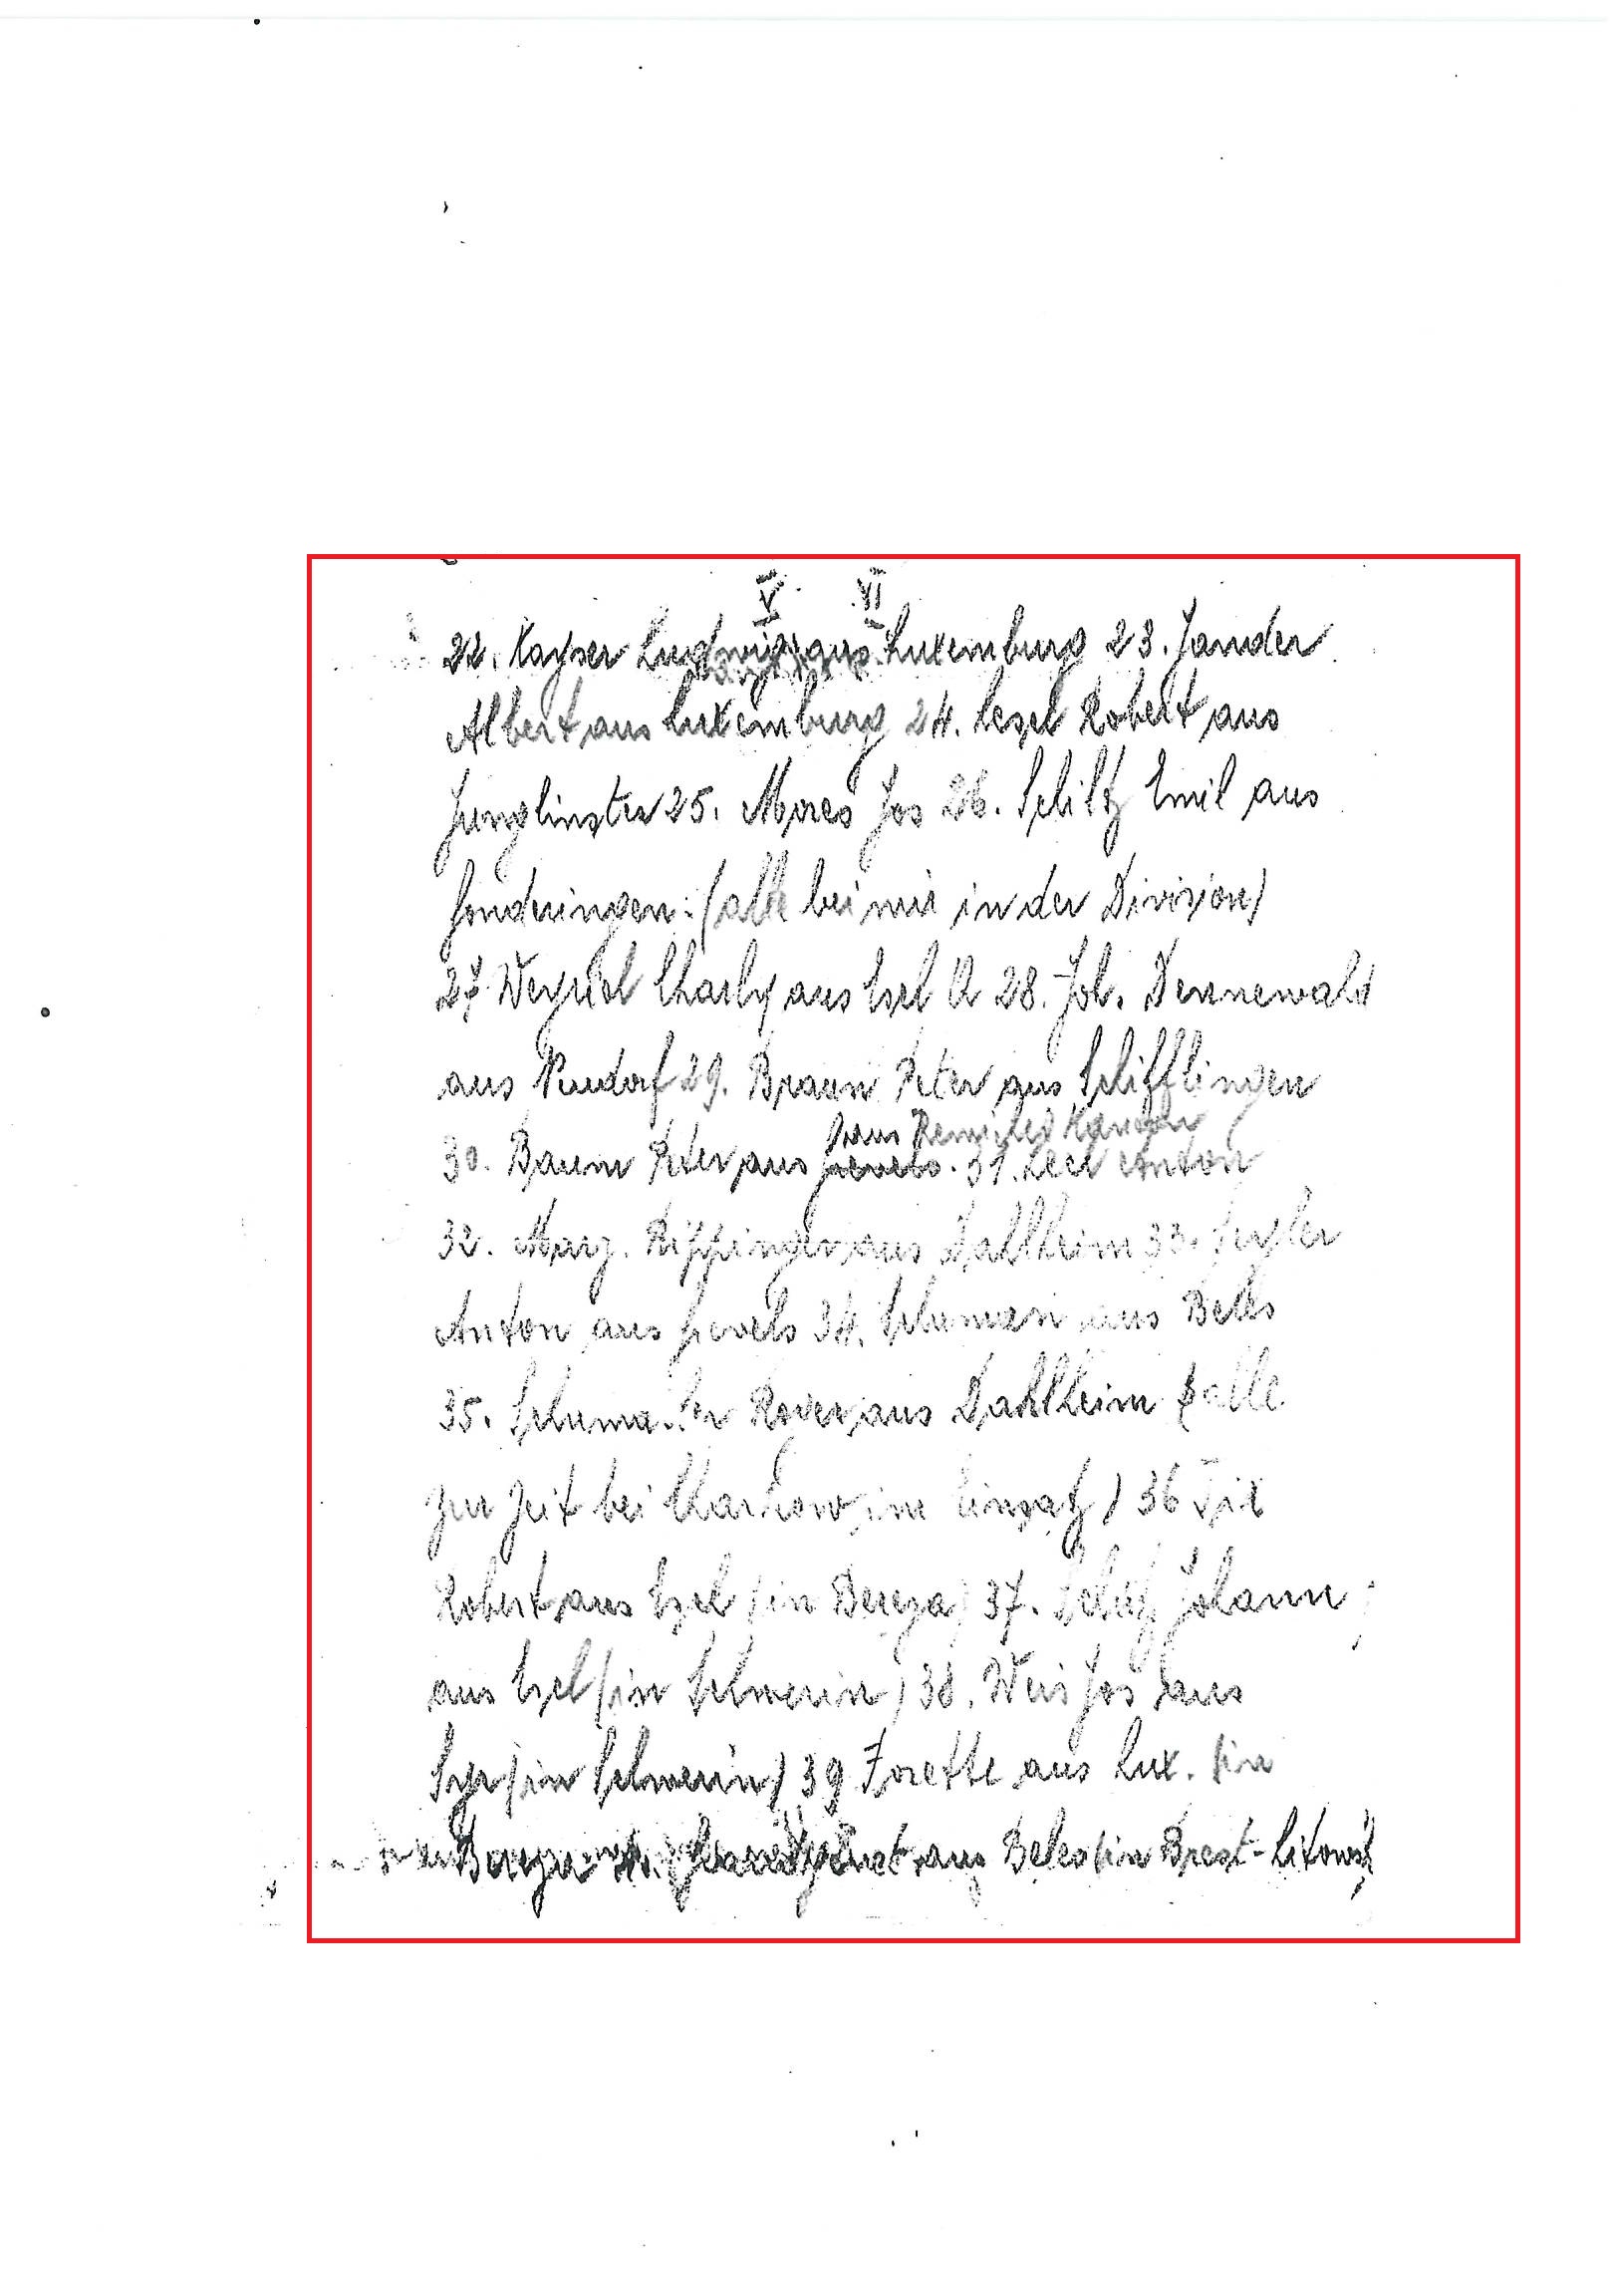 V. VI
22. Kayser Ludwig aus Luxemburg 23. Jander
Albert aus Luxemburg 24. Robert aus
Junglinster 25. Mores Jos 26. Schiltz Emil aus
Gonderingen. (alle bei mir in der Division)
27. Charly aus Esch A 28. Joh. Dennewald
aus Neudorf 29. Braun Peter aus Schifflingen
30. Baum Peter aus 31. Anton
32. Marz. Rippinger aus Dahlheim 33.
Anton aus Grevels 34. Schuman aus Beles
35. aus Dahlheim (alle
zur Zeit bei Charkow im Einsatz) 36
Robert aus Esch (in Bereza) 37. Johann
aus Esch (in Schwerin) 38. Weis Jos aus
(in Schwerin) 39 aus Lux. (in
Bereza aus Beles (in Brest-Litowsk